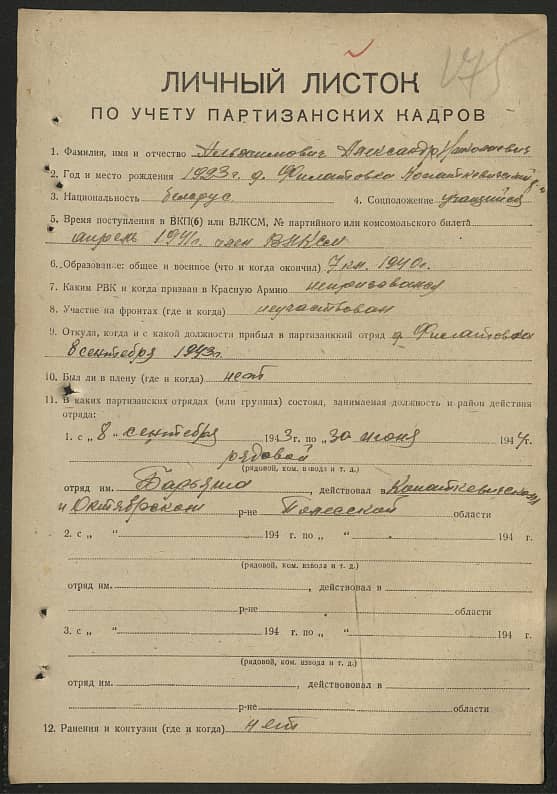 175
ЛИЧНЫЙ ЛИСТОК
ПО УЧЕТУ ПАРТИЗАНСКИХ КАДРОВ
1. Фамилия, имя и отчество Альхимович Александр Николаевич
2. Год и место рождения 1923 г. д. Филатовка Копаткевичский р-н
3. Национальность Беларус. 4. Соцположение учащийся
5. Время поступления в ВКП(б) или ВЛКСМ, № партийного или комсомольского билета
апрель 1941г. член ВЛКСМ
6. Образование: общее и военное (что и когда окончил) 7 кл. 1940 г.
7. Каким РВК и когда призван в Красную Армию непризывался
8. Участие на фронтах (где и когда) неучаствовал
9. Откуда, когда и с какой должности прибыл в партизанкий отряд д. Филатовка
8 сентября 1943г.
10. Был ли в плену (где и когда) нет
11. В каких партизанских отрядах (или группах) состоял, занимаемая должность и район действия
отряда:
1. с „ 8 “ сентября 1943 г. по „ 30 июня 1944 г.
рядовой
(рядовой, ком. взвода и т. д.)
отряд им. Барьяша, действовал в Копаткевичском
и Октябрьском р-не Полесской области
2. с „ “ 194 г. по „ “ 194 г.
(рядовой, ком. взвода и т. д.)
отряд им. , действовал в
р-не области
3. с „ “ 194 г. по „ “ 194 г.
(рядовой, ком. взвода и т. д.)
отряд им. , действововал в
р-не области
12. Ранения и контузии (где и когда) нет